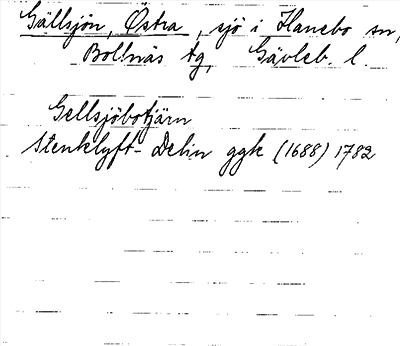 Gällsjön, Östra, sjö i Hanebo sn,
Bollnäs tg, Gävleb. l.
Gellsjöbotjärn
Stenklyft-Delin ggk (1688) 1782